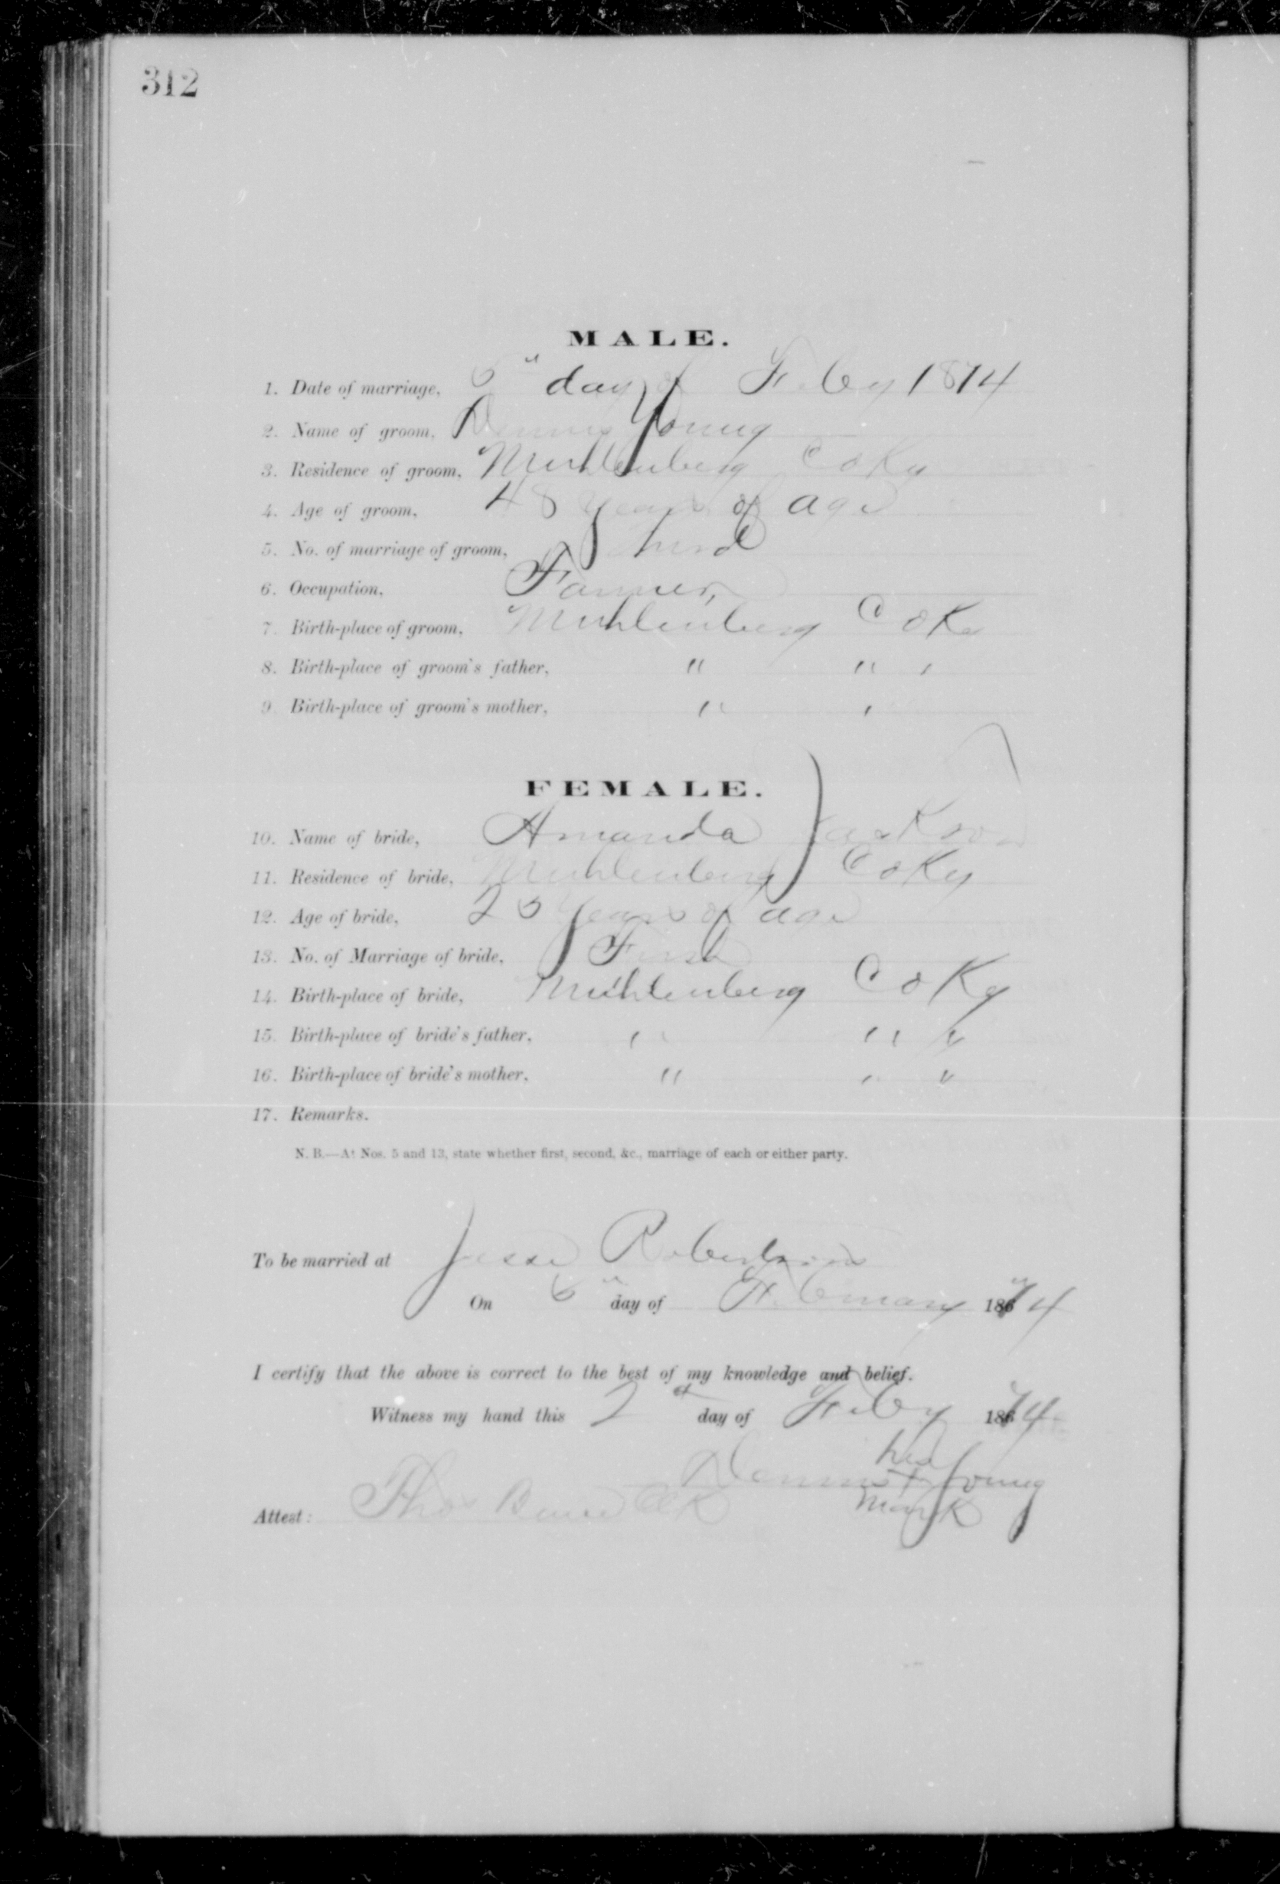 312
MALE.
1. Date of marriage, 6" day of Feby 1874
2. Name of groom, Dennis Young
3. Residence of groom, Muhlenberg Co Ky
4. Age of groom, 48 years of age
5. No. of marriage of groom, Third
6. Occupation, Farmer,
7. Birth-place of groom, Muhlenberg Co Ky
8. Birth-place of groom's father, " " "
9. Birth-place of groom's mother, " "
FEMALE.
10. Name of bride, Amanda Jackson
11. Residence of bride, Muhlenberg Co Ky
12. Age of bride, years of age
13. No. of Marriage of bride, First
14. Birth-place of bride, Muhlenberg Co Ky
15. Birth-place of bride's father, " " "
16. Birth-place of bride's mother, " " "
17. Remarks.
N. B.—At Nos. 5 and 13, state whether first, second, &c., marriage of each or either party.
To be married at Jesse Robertsons
On 6" day of February 1874
I certify that the above is correct to the best of my knowledge and belief.
Witness my hand this 2 day of Feby 1874
his
Dennis + Young
mark
Attest: Thos Bruce Clk